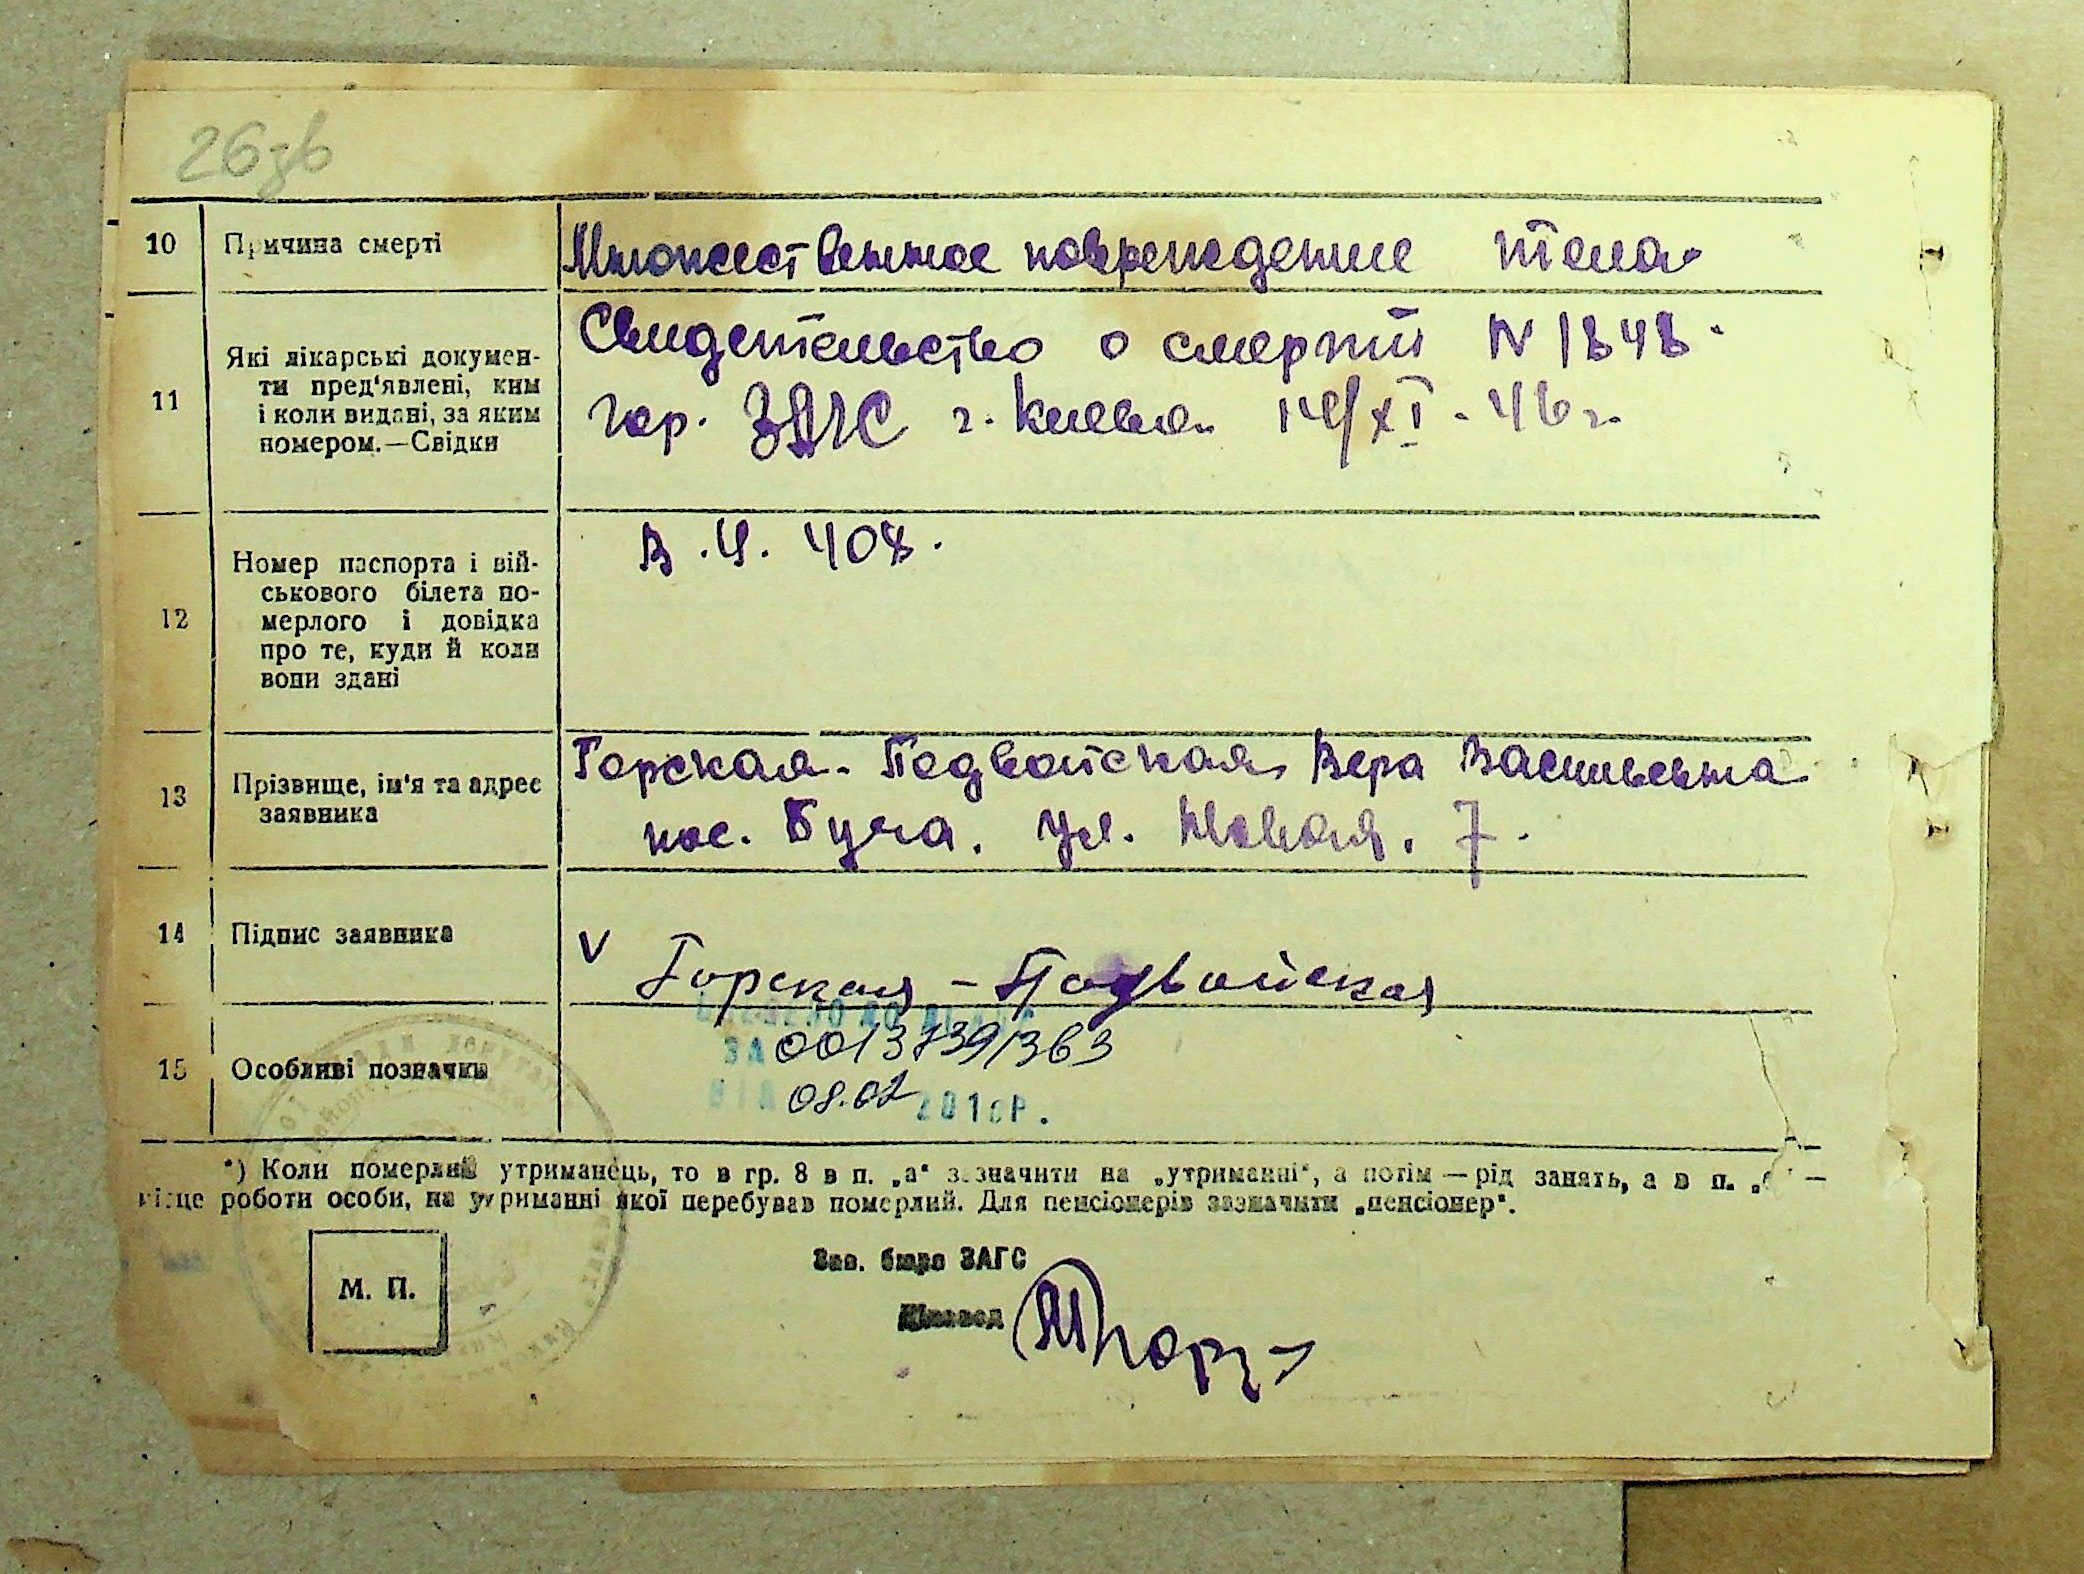 26зв
10 Причина смерті Множественное повреждение тела
11 Які лікарські докумен-
ти пред'явлені, ким
і коли видані, за яким
номером.—Свідки
Свидетельство о смерти N 1848.
гор. ЗАГС г. Киева 14/XI-46 г.
12 Номер паспорта і вій-
ськового білета по-
мерлого і довідка
про те, куди й коли
вони здані
В.Ч. 408.
13 Прізвище, ім'я та адрес
заявника
Горская-Подвойская Вера Васильевна
пос. Буча. ул. Новая. 7.
14 Підпис заявника V Горская-Подвойская
15 Особливі позначки
ЗА 00137391363
ВІД 08.02 201 Р.
*) Коли померлий утриманець, то в гр. 8 в п. „а" зазначити на „утриманні", а потім — рід занять, а в п. —
місце роботи особи, на утриманні якої перебував померлий. Для пенсіонерів зазначити „пенсіонер".
Зав. бюро ЗАГС
М. П.
Діловод